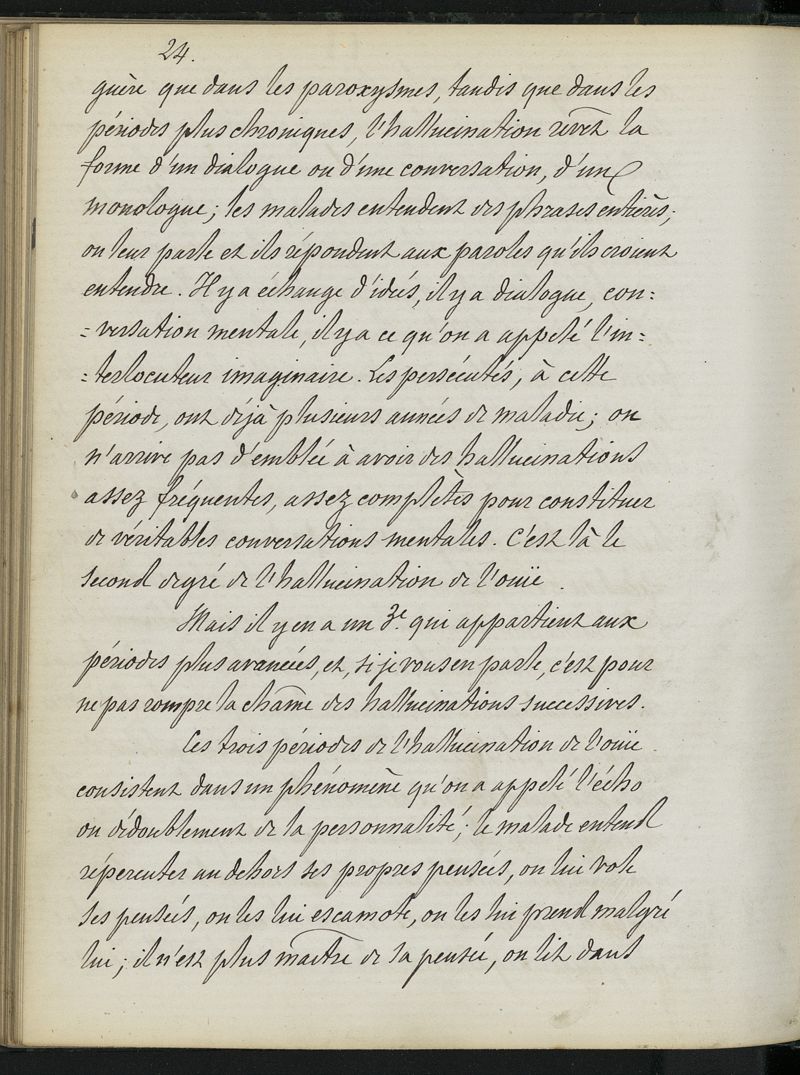 24.
guère que dans les paroxysmes, tandis que dans les
périodes plus chroniques, l'hallucination revêt la
forme d'un dialogue ou d'une conversation, d'un
monologue; les malades entendent des phrases entières;
on leur parle et ils répondent aux paroles qu'ils croient
entendre. Il y a échange d'idées, il y a dialogue, con=
=versation mentale, il y a ce qu'on a appelé l'in=
=terlocuteur imaginaire. Les persécutés, à cette
période, ont déjà plusieurs années de maladie; on
n'arrive pas d'emblée à avoir des hallucinations
assez fréquentes, assez complètes pour constituer
de véritables conversations mentales. C'est là le
second degré de l'hallucination de l'ouïe.
Mais il y en a un 3e. qui appartient aux
périodes plus avancées, et, si je vous en parle, c'est pour
ne pas rompre la chaîne des hallucinations successives.
Ces trois périodes de l'hallucination de l'ouïe
consistent dans un phénomène qu'on a appelé l'écho
ou dédoublement de la personnalité; le malade entend
répercuter au dehors ses propres pensées, on lui vole
ses pensées, on les lui escamote, on les lui prend malgré
lui; il n'est plus maître de sa pensée, on lit dans